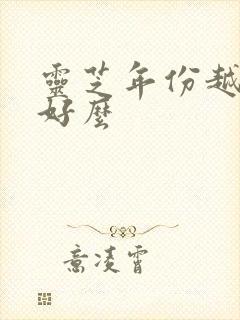 靈芝年份越
好麼
意凌霄